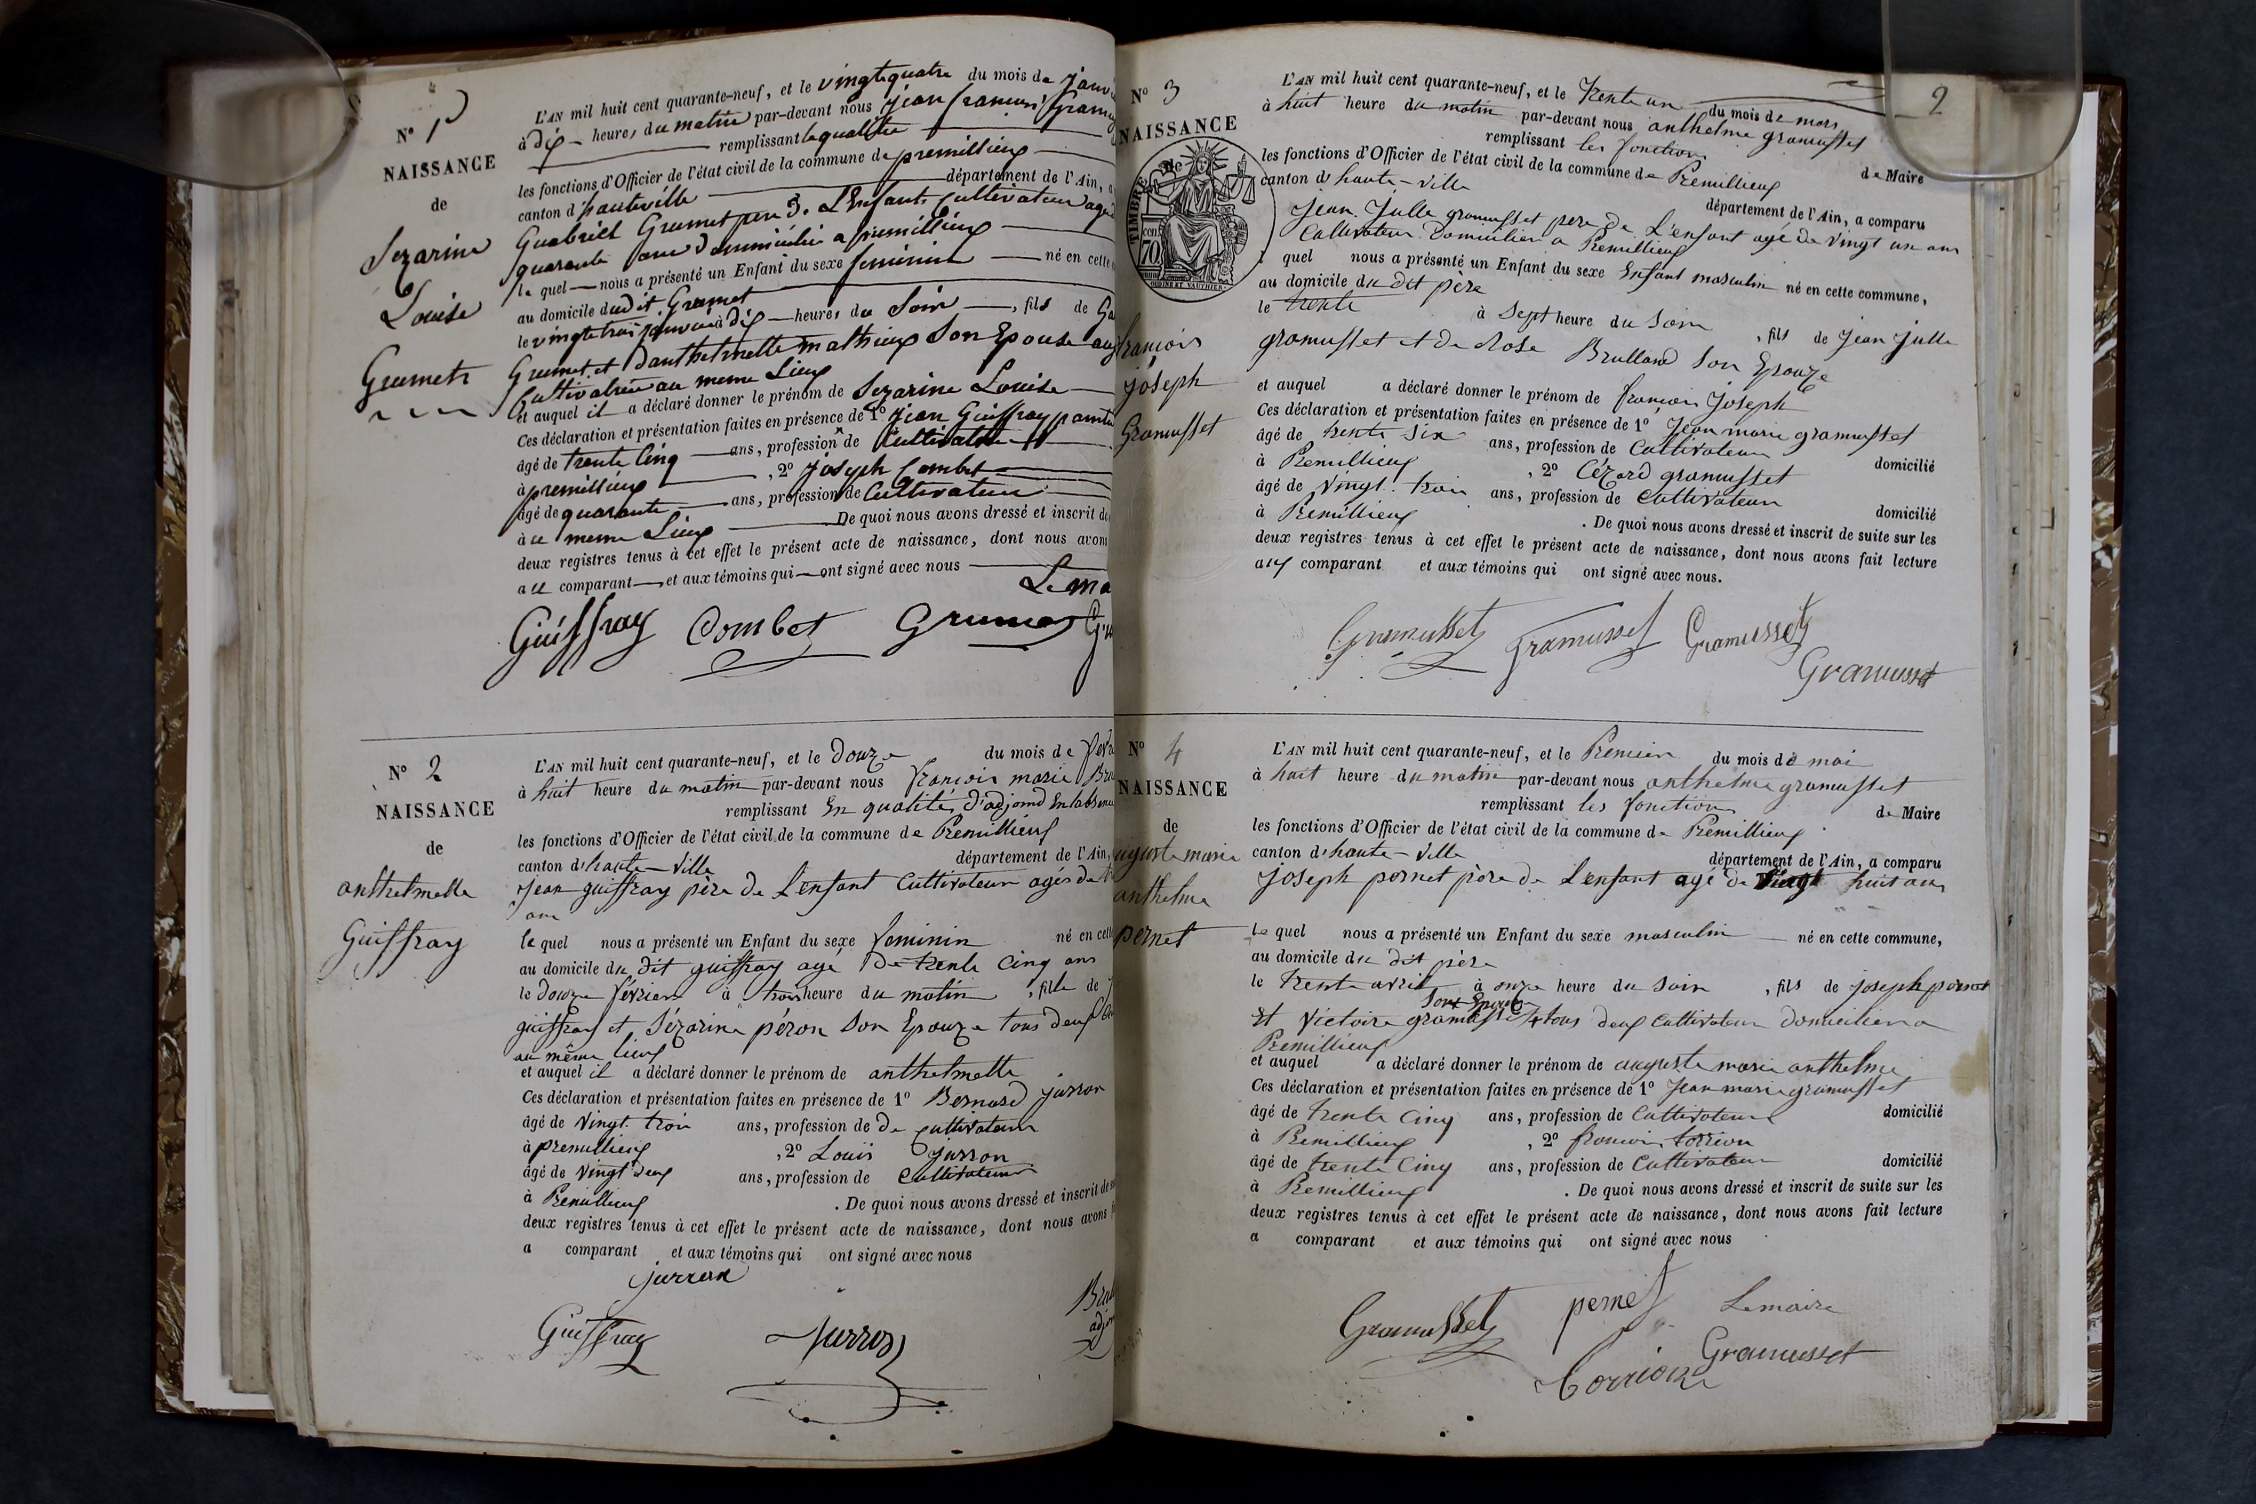 N° 1
NAISSANCE
de
Sezarine
Louise
Grumet
L'AN mil huit cent quarante-neuf, et le vingt quatre du mois de Janv
à dix heures du matin par-devant nous Jean françois Gram
remplissant la qualitée
les fonctions d'Officier de l'état civil de la commune de premillieux
canton d'hauteville département de l'Ain, a
Guabriel Grumet père D. L'Enfant Cultivateur agé d
quarante ans domicilié a premillieux
le quel nous a présenté un Enfant du sexe feminin né en cette
au domicile dudit Grumet
le vingt trois janvié à dix heures du Soir, fils de Ga
Grumet et d'anthelmette mathieux Son Epouse aug
Cultivatrice au meme Lieux
et auquel il a déclaré donner le prénom de Sezarine Louise
Ces déclaration et présentation faites en présence de 1° Jean Guiffray
âgé de trente Cinq ans, profession de Cultivateur
à premillieux, 2° Joseph Combet
âgé de quarante ans, profession de Cultivateur
à u meme Lieux De quoi nous avons dressé et inscrit de
deux registres tenus à cet effet le présent acte de naissance, dont nous avons
au comparant et aux témoins qui ont signé avec nous
Le ma
Guiffray Combet Grumet
N° 2
NAISSANCE
de
anthelmette
Guiffray
L'AN mil huit cent quarante-neuf, et le Douze du mois de fev
à huit heure du matin par-devant nous françois marie Bru
remplissant En qualités d'adjoind En labsence
les fonctions d'Officier de l'état civil de la commune de Premillieux
canton d'haute-ville département de l'Ain,
Jean guiffray père De L'enfant Cultivateur agés de
ans
le quel nous a présenté un Enfant du sexe feminin né en cette
au domicile du dit guiffray agé De trente cinq ans
le douze février à trois heure du matin, fille de
guiffray et Sézarine péron Son Epouze tous deux
au même lieux
et auquel il a déclaré donner le prénom de anthelmette
Ces déclaration et présentation faites en présence de 1° Bernard jurron
âgé de vingt. trois ans, profession de De Cultivateur
à premillieux, 2° Louis jurron
âgé de vingt deux ans, profession de Cultivateur
à Premillieux. De quoi nous avons dressé et inscrit de
deux registres tenus à cet effet le présent acte de naissance, dont nous avons
a comparant et aux témoins qui ont signé avec nous
jurron
Guiffray Jurron
2
N° 3
NAISSANCE
de
TIMBRE
70
françois
joseph
Gramusset
L'AN mil huit cent quarante-neuf, et le Trente un du mois de mars
à huit heure du matin par-devant nous anthelme gramusset
remplissant les fonction de Maire
les fonctions d'Officier de l'état civil de la commune de Premillieux
canton d'haute-ville département de l'Ain, a comparu
Jean. Julle gramusset pere De L'enfant agé de vingt un ans
Cultivateur Domicilier a Premillieux
quel nous a présenté un Enfant du sexe Enfant masculin né en cette commune,
au domicile du dit père
le trente à Sept heure du Soir, fils de Jean Julle
gramusset et de Rose Brulland Son Epouze
et auquel a déclaré donner le prénom de françois Joseph
Ces déclaration et présentation faites en présence de 1° Jean marie gramusset
âgé de trente Six ans, profession de Cultivateur domicilié
à Premillieux, 2° Cézard gramusset
âgé de vingt. trois ans, profession de Cultivateur domicilié
à Premillieux. De quoi nous avons dressé et inscrit de suite sur les
deux registres tenus à cet effet le présent acte de naissance, dont nous avons fait lecture
aux comparant et aux témoins qui ont signé avec nous.
Gramusset Gramusset Gramusset
Gramusset
N° 4
NAISSANCE
de
auguste marie
anthelme
pernet
L'AN mil huit cent quarante-neuf, et le Premier du mois de mai
à huit heure du matin par-devant nous anthelme gramusset
remplissant les fonction de Maire
les fonctions d'Officier de l'état civil de la commune de Premillieux
canton d'haute-ville département de l'Ain, a comparu
Joseph pernet père De L'enfant agé De vingt huit ans
le quel nous a présenté un Enfant du sexe masculin né en cette commune,
au domicile du dit père
le trente avril à onze heure du Soir, fils de joseph pernet
Son Epouze
Et victoire gramusset tous deux Cultivateur Domicilier a
Premillieux
et auquel a déclaré donner le prénom de auguste marie anthelme
Ces déclaration et présentation faites en présence de 1° Jean marie gramusset
âgé de trente Cinq ans, profession de Cultivateur domicilié
à Premillieux, 2° françois torrion
âgé de trente Cinq ans, profession de Cultivateur domicilié
à Premillieux. De quoi nous avons dressé et inscrit de suite sur les
deux registres tenus à cet effet le présent acte de naissance, dont nous avons fait lecture
a comparant et aux témoins qui ont signé avec nous
Gramusset pernet Lemaire
Gramusset
Corrion